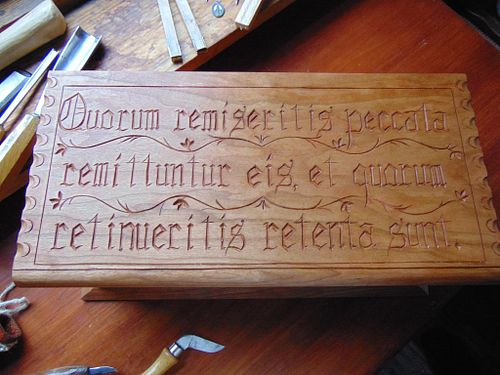 Quorum remiseritis peccata
remittuntur eis, et quorum
retinueritis retenta sunt.